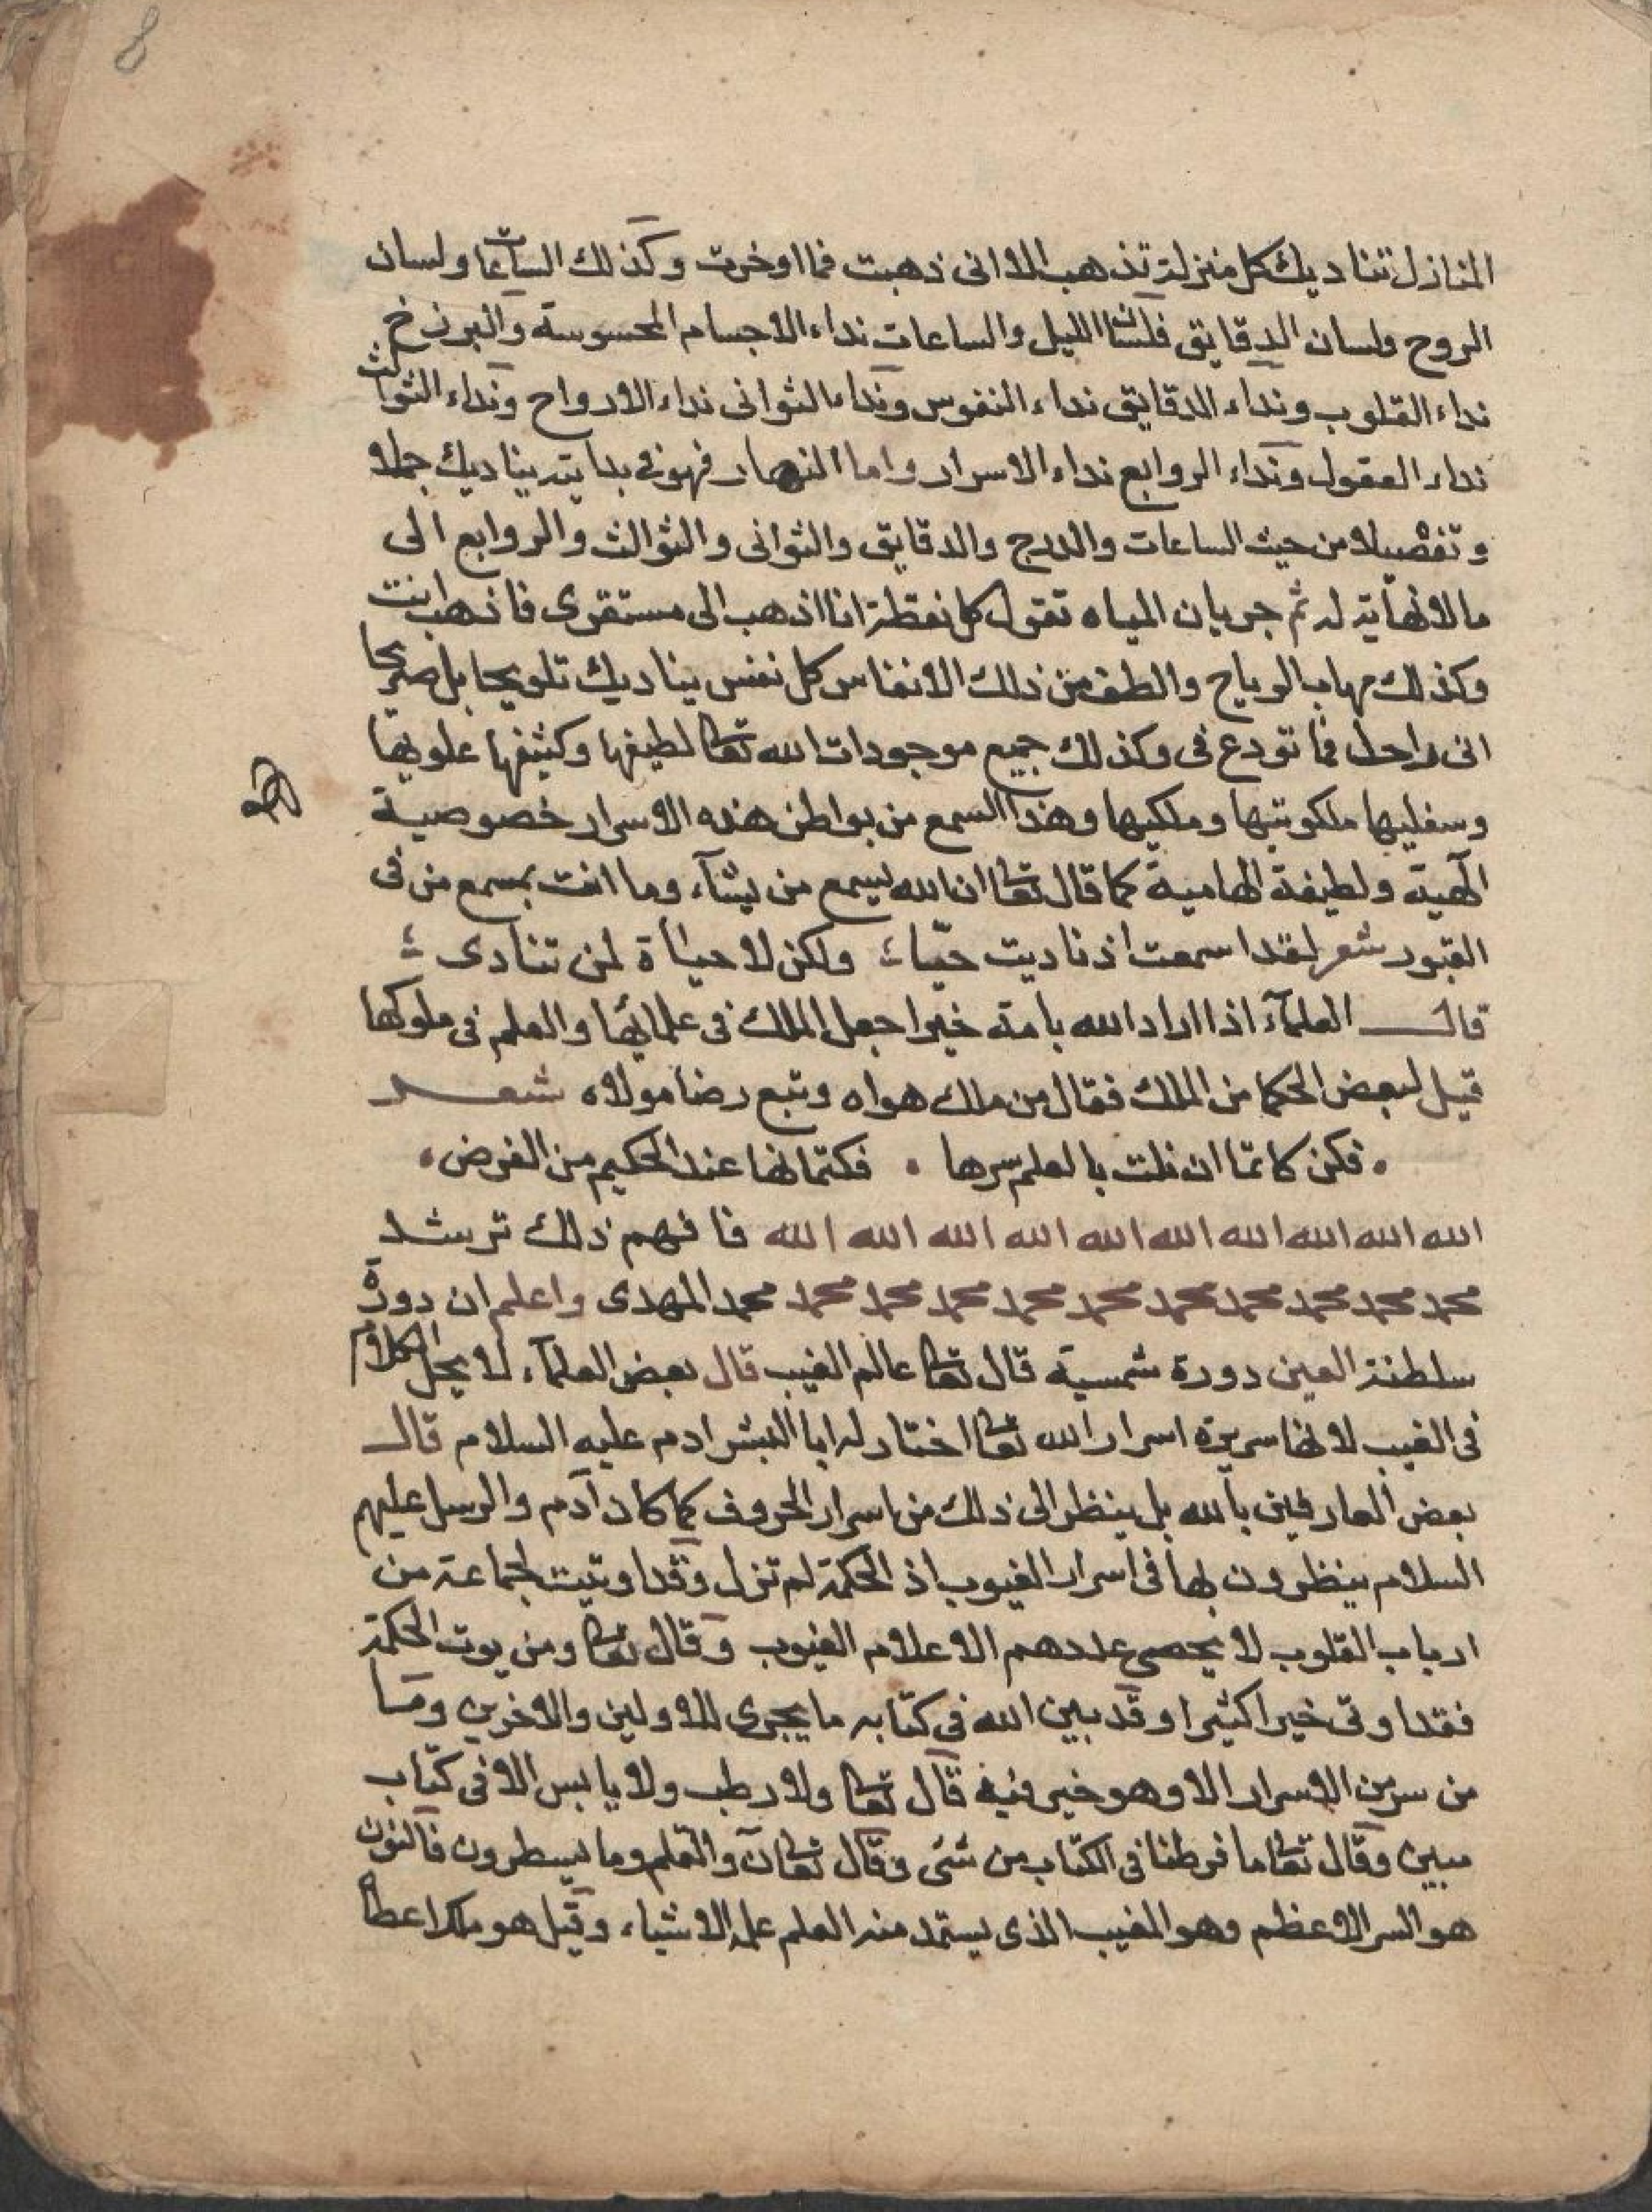 8
المنازل تناديك كل منزلة تذهب الا انى ذهبت فما اوخرت وكذلك الساعات ولسان
الروح ولسان الدقايق فلسان الليل والساعات نداء الاجسام المحسوسة والبرزخ
نداء القلوب ونداء الدقايق نداء النفوس ونداء الثوانى نداء الارواح ونداء الثوالث
نداء العقول ونداء الروابع نداء الاسرار واما النهار فهو فى بدايته يناديك جملا
وتفصيلا من حيث الساعات والدرج والدقايق والثوانى والثوالث والروابع الى
مالا نهاية له ثم جريان المياه تقول كل نقطة انا اذهب الى مستقرى فاذهب انت
وكذلك مهاب الرياح والطف من ذلك الانفاس كل نفس يناديك تلويحا بل صريحا
انى راحل فما تودع فى وكذلك جميع موجودات الله تعالى لطيفها وكثيفها علويها
وسفليها ملكوتيها وملكيها وهذا السمع من بواطن هذه الاسرار خصوصية
الهية ولطيفة الهامية كما قال تعالى ان الله يسمع من يشآء وما انت بمسمع من فى
القبور شعر لقد اسمعت اذ ناديت حيّا ولكن لا حياة لمن تنادى
قال العلمآء اذا اراد الله بامة خيرا جعل الملك فى علمائها والعلم فى ملوكها
قيل لبعض الحكما من الملك فقال من ملك هواه وتبع رضا مولاه شعر
فكن كاتما ان نلت بالعلم سرها فكتمانها عند الحكيم من الفرض
الله الله الله الله الله الله الله الله الله الله فافهم ذلك ترشد
محمد محمد محمد محمد محمد محمد محمد محمد محمد محمد المهدى واعلم ان دورة
سلطنة العين دورة شمسية قال تعالى عالم الغيب قال بعض العلمآء لا يحل الكلام
فى الغيب لانها سريرة اسرار الله تعالى اختار له ابا البشر ادم عليه السلام قال
بعض العارفين بالله بل ينظر الى ذلك من اسرار الحروف كما كان آدم والرسل عليهم
السلام ينظرون بها فى اسرار الغيوب اذ الحكمة لم تزل وقد اوتيت لجماعة من
ارباب القلوب لا يحصى عددهم الا علام الغيوب وقال تعالى ومن يوت الحكمة
فقد اوتى خيرا كثيرا وقد بين الله فى كتابه ما يجرى للاولين والاخرين وما
من سر من الاسرار الا وهو خير فيه قال تعالى ولا رطب ولا يابس الا فى كتاب
مبين وقال تعالى ما فرطنا فى الكتاب من شئ وقال تعالى ن والقلم وما يسطرون فالنون
هو السر الاعظم وهو الغيب الذى يستمد منه العلم علم الاشياء وقيل هو ملك اعطاه